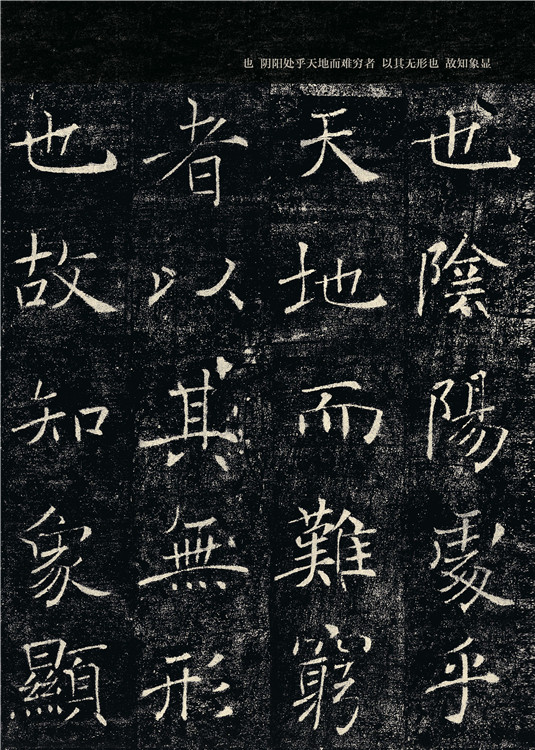 也 阴阳处乎天地而难穷者 以其无形也 故知象显
也陰陽處乎
天地而難窮
者以其無形
也故知象顯